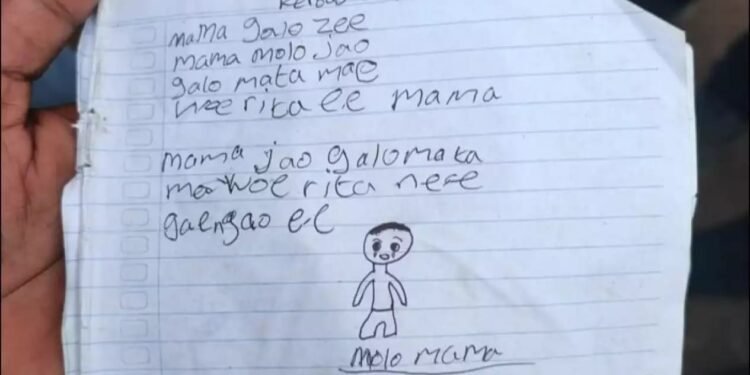 mama galo zee
mama molo jao
galo mata mae
woe rita ee mama
mama jao galo mata
mae woe rita ne-e
gaengao ee
molo mama